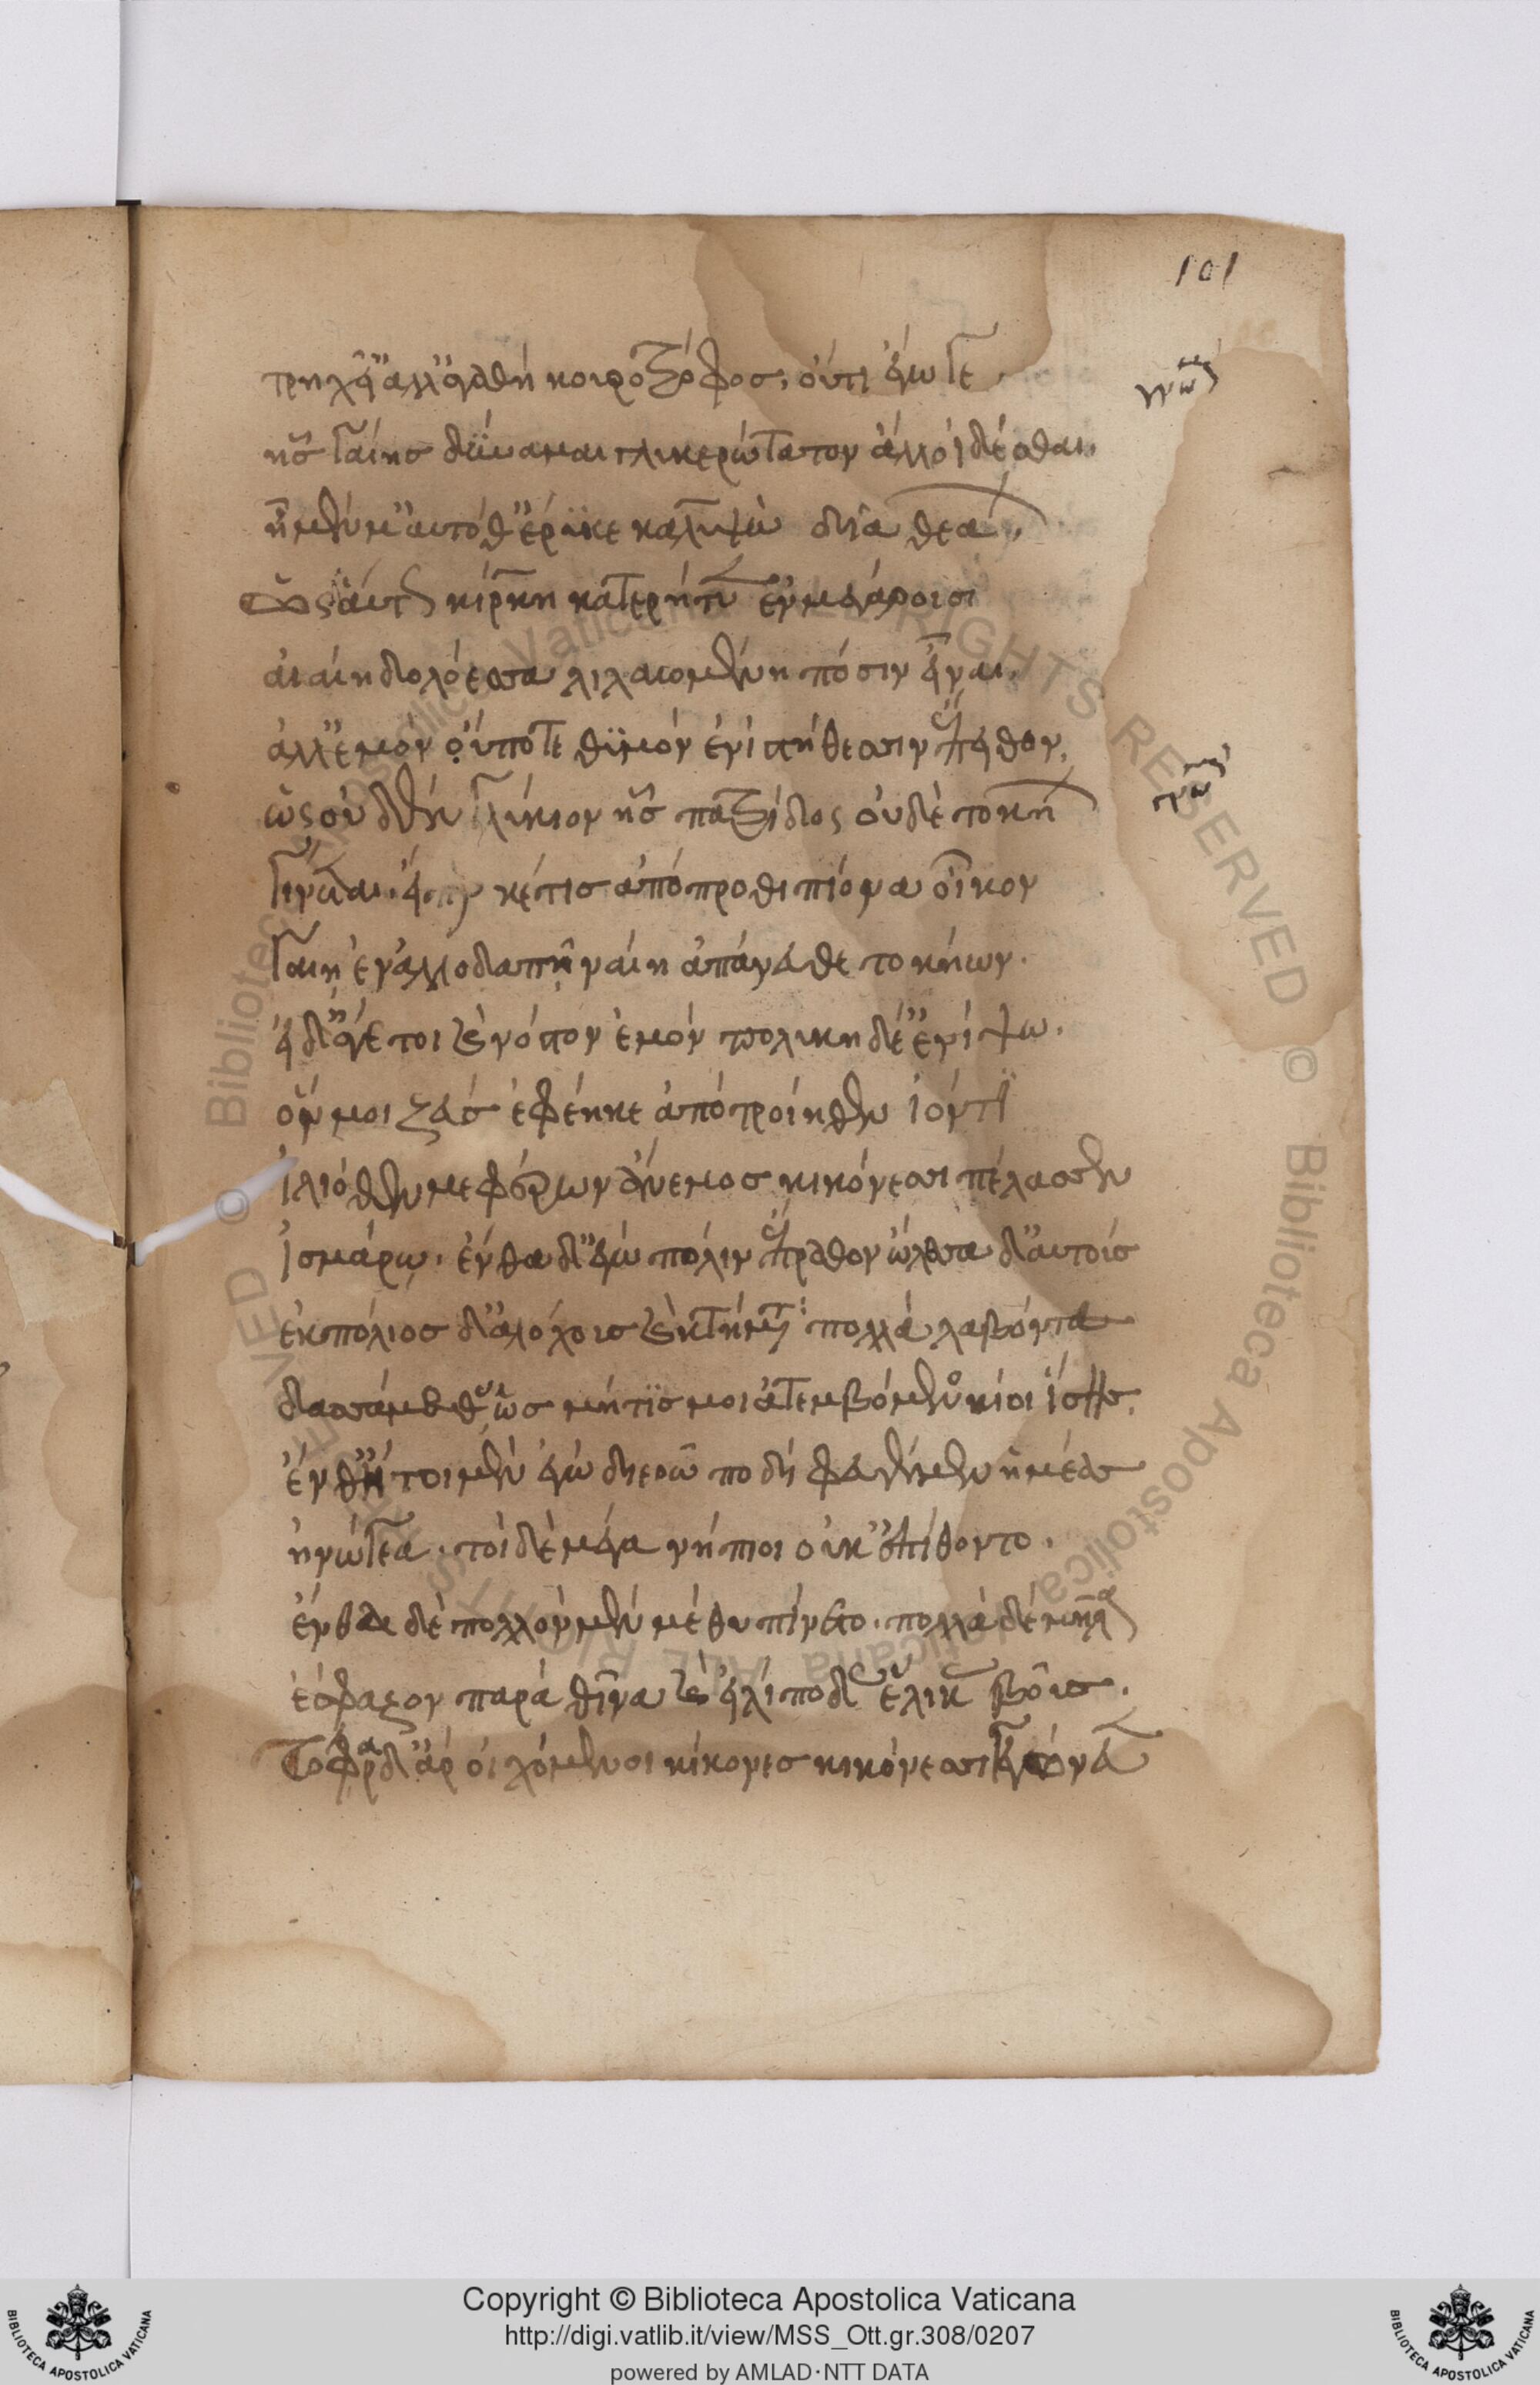 101
τρηχεῖ' ἀλλ' ἀγαθὴ κουροτρόφος· οὔτι ἔγωγε
γνώμη
ἧς γαίης δύναμαι γλυκερώτατον ἄλλο ἰδέσθαι·
ἦ μέν μ' αὐτόθ' ἔρυκε καλυψὼ δῖα θεάων·
ὣς δ' αὔτως κίρκη κατερήτυεν ἐν μεγάροισι
αἰαίη δολόεσσα λιλαιομένη πόσιν εἶναι·
ἀλλ' ἐμὸν οὔποτε θυμὸν ἐνὶ στήθεσσιν ἔπειθον.
ὣς οὐδὲν γλύκιον ἧς πατρίδος οὐδὲ τοκήων
γνώμη
γίνεται· εἴπερ καί τις ἀπόπροθι πίονα οἶκον
γαίῃ ἐν ἀλλοδαπῇ ναίει ἀπάνευθε τοκήων.
εἰ δ' ἄγε τοι καὶ νόστον ἐμὸν πολυκηδέ' ἐνίψω.
ὅν μοι ζεὺς ἐφέηκε ἀπὸ τροίηθεν ἰόντι
ἰλιόθεν με φέρων ἄνεμος κικόνεσσι πέλασσεν
ἰσμάρῳ· ἔνθα δ' ἐγὼ πόλιν ἔπραθον ὤλεσα δ' αὐτούς
ἐκ πόλιος δ' ἀλόχους καὶ κτήματα πολλὰ λαβόντες
δασσάμεθ' ὡς μήτις μοι ἀτεμβόμενος κίοι ἴσης.
ἔνθ' ἤτοι μὲν ἐγὼ διερῷ ποδὶ φευγέμεν ἡμέας
ἠνώγεα· τοὶ δὲ μέγα νήπιοι οὐκ ἐπίθοντο.
ἔνθα δὲ πολλὸν μὲν μέθυ πίνετο· πολλὰ δὲ μῆλα
ἔσφαζον παρὰ θῖνα καὶ εἰλίποδας ἕλικας βοῦς.
τόφρα δ' ἄρ οἰχόμενοι κίκονες κικόνεσσι γεγώνευν
Copyright © Biblioteca Apostolica Vaticana
http://digi.vatlib.it/view/MSS_Ott.gr.308/0207
powered by AMLAD·NTT DATA